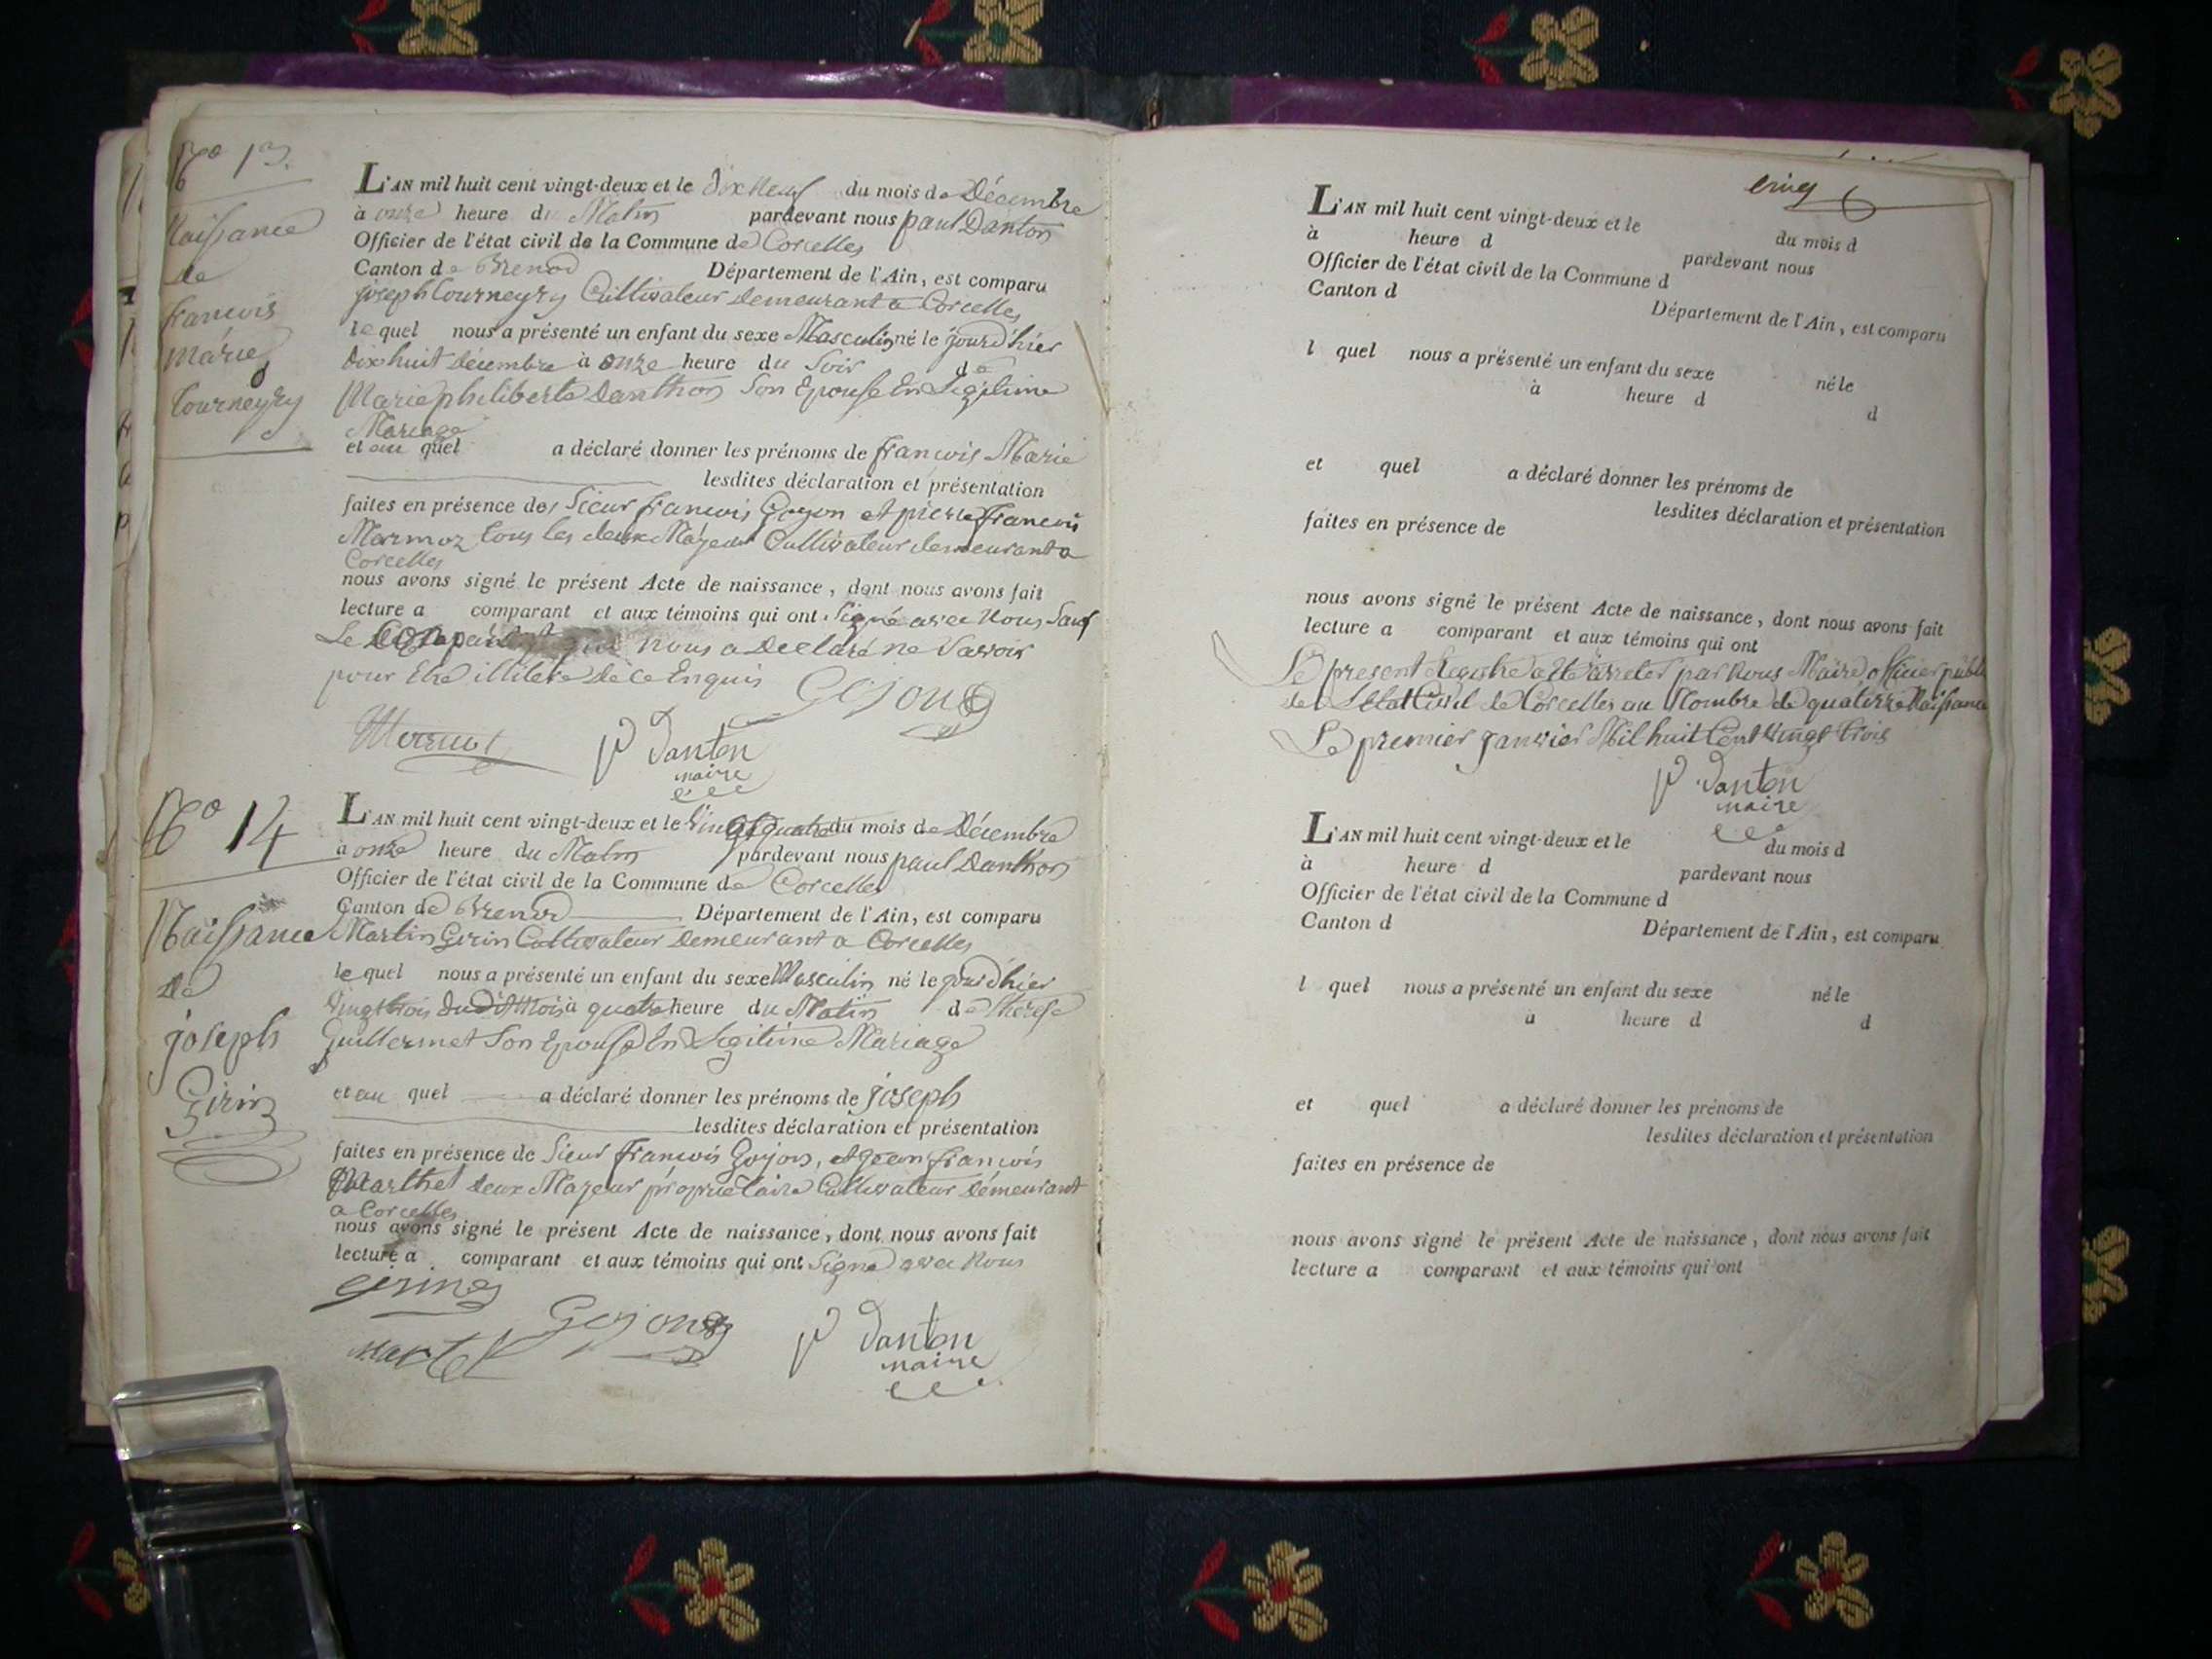 No 13.
Naissance
de
francois
marie
Tourneyry
L'AN mil huit cent vingt-deux et le dix Neuf du mois de Décembre
à onze heure du Matin pardevant nous paul Danton
Officier de l'état civil de la Commune de Corcelles
Canton de Brenod Département de l'Ain, est comparu
joseph Tourneyry Cultivateur demeurant a Corcelles
lequel nous a présenté un enfant du sexe Masculin né le jourd'hier
dix huit décembre à onze heure du Soir de
Marie philiberte danthon Son Epouse En Legitime
Mariage
et au quel a déclaré donner les prénoms de francois Marie
lesdites déclaration et présentation
faites en présence des Sieur francois Goyon et pierre francois
Marmoz tous les deux Majeur Cultivateur demeurant a
Corcelles
nous avons signé le présent Acte de naissance, dont nous avons fait
lecture a comparant et aux témoins qui ont Signé avec Nous Sauf
Le Comparant qui nous a Declaré ne Savoir
pour Etre illitere de ce Enquis
Gojon
p Danton
maire
No 14
Naissance
de
joseph
Girin
L'AN mil huit cent vingt-deux et le Vingt quatre du mois de Décembre
à onze heure du Matin pardevant nous paul Danthon
Officier de l'état civil de la Commune de Corcelles
Canton de Brenod Département de l'Ain, est comparu
Martin Girin Cultivateur demeurant a Corcelles
lequel nous a présenté un enfant du sexe Masculin né le jourd'hier
Vingt trois dudit Mois à quatre heure du Matin de therese
Guillermet Son Epouse En Legitime Mariage
et au quel a déclaré donner les prénoms de joseph
lesdites déclaration et présentation
faites en présence de Sieur francois Gojon, et jean francois
Marthel deux Majeur proprietaire Cultivateur demeurant
a Corcelles
nous avons signé le présent Acte de naissance, dont nous avons fait
lecture a comparant et aux témoins qui ont Signé avec Nous
Girin
Gojon
p Danton
maire
martel
L'AN mil huit cent vingt-deux et le du mois d
à heure d pardevant nous
Officier de l'état civil de la Commune d
Canton d Département de l'Ain, est comparu
l quel nous a présenté un enfant du sexe né le
à heure d d
et quel a déclaré donner les prénoms de
lesdites déclaration et présentation
faites en présence de
nous avons signé le présent Acte de naissance, dont nous avons fait
lecture a comparant et aux témoins qui ont
Le present Registre a ete arreter par Nous Maire officier public
de L'Etat Civil de Corcelles au Nombre de quatorze Naissance
Le premier janvier Mil huit Cent Vingt trois
p Danton
maire
L'AN mil huit cent vingt-deux et le du mois d
à heure d pardevant nous
Officier de l'état civil de la Commune d
Canton d Département de l'Ain, est comparu
l quel nous a présenté un enfant du sexe né le
à heure d d
et quel a déclaré donner les prénoms de
lesdites déclaration et présentation
faites en présence de
nous avons signé le présent Acte de naissance, dont nous avons fait
lecture a comparant et aux témoins qui ont